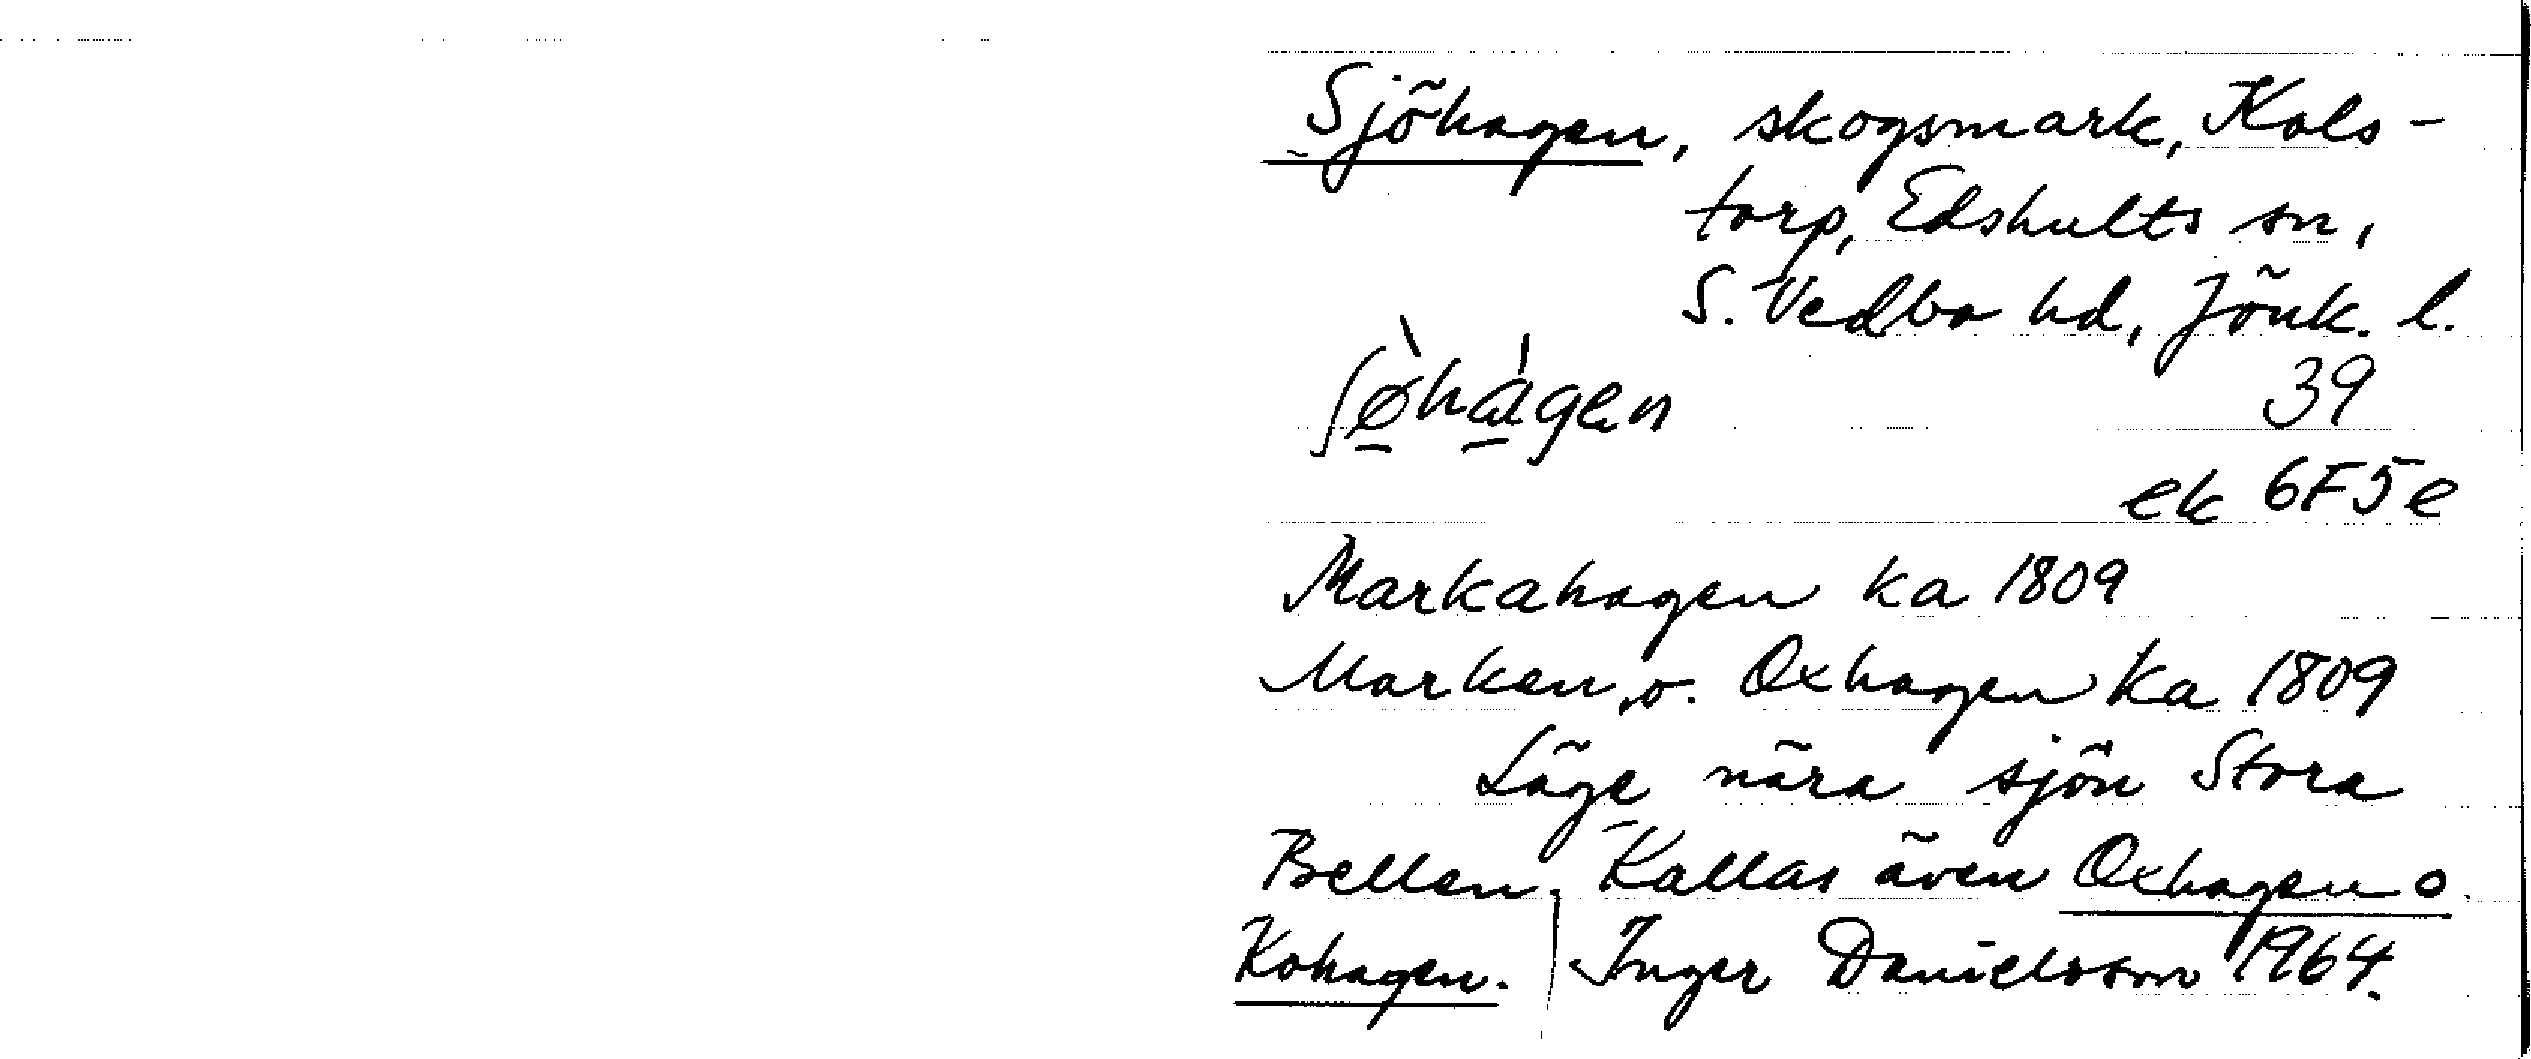 Sjöhagen, skogsmark, Kols-
torp, Edshults sn,
S. Vedbo hd, Jönk. l.
ʃø̠̀ha̠̍gen
39
ek 6F5e
Markahagen ka 1809
Marken, o. Oxhagen ka 1809
Läge nära sjön Stora
Bellen. Kallas även Oxhagen o.
Kohagen. Inger Danielsson 1964.